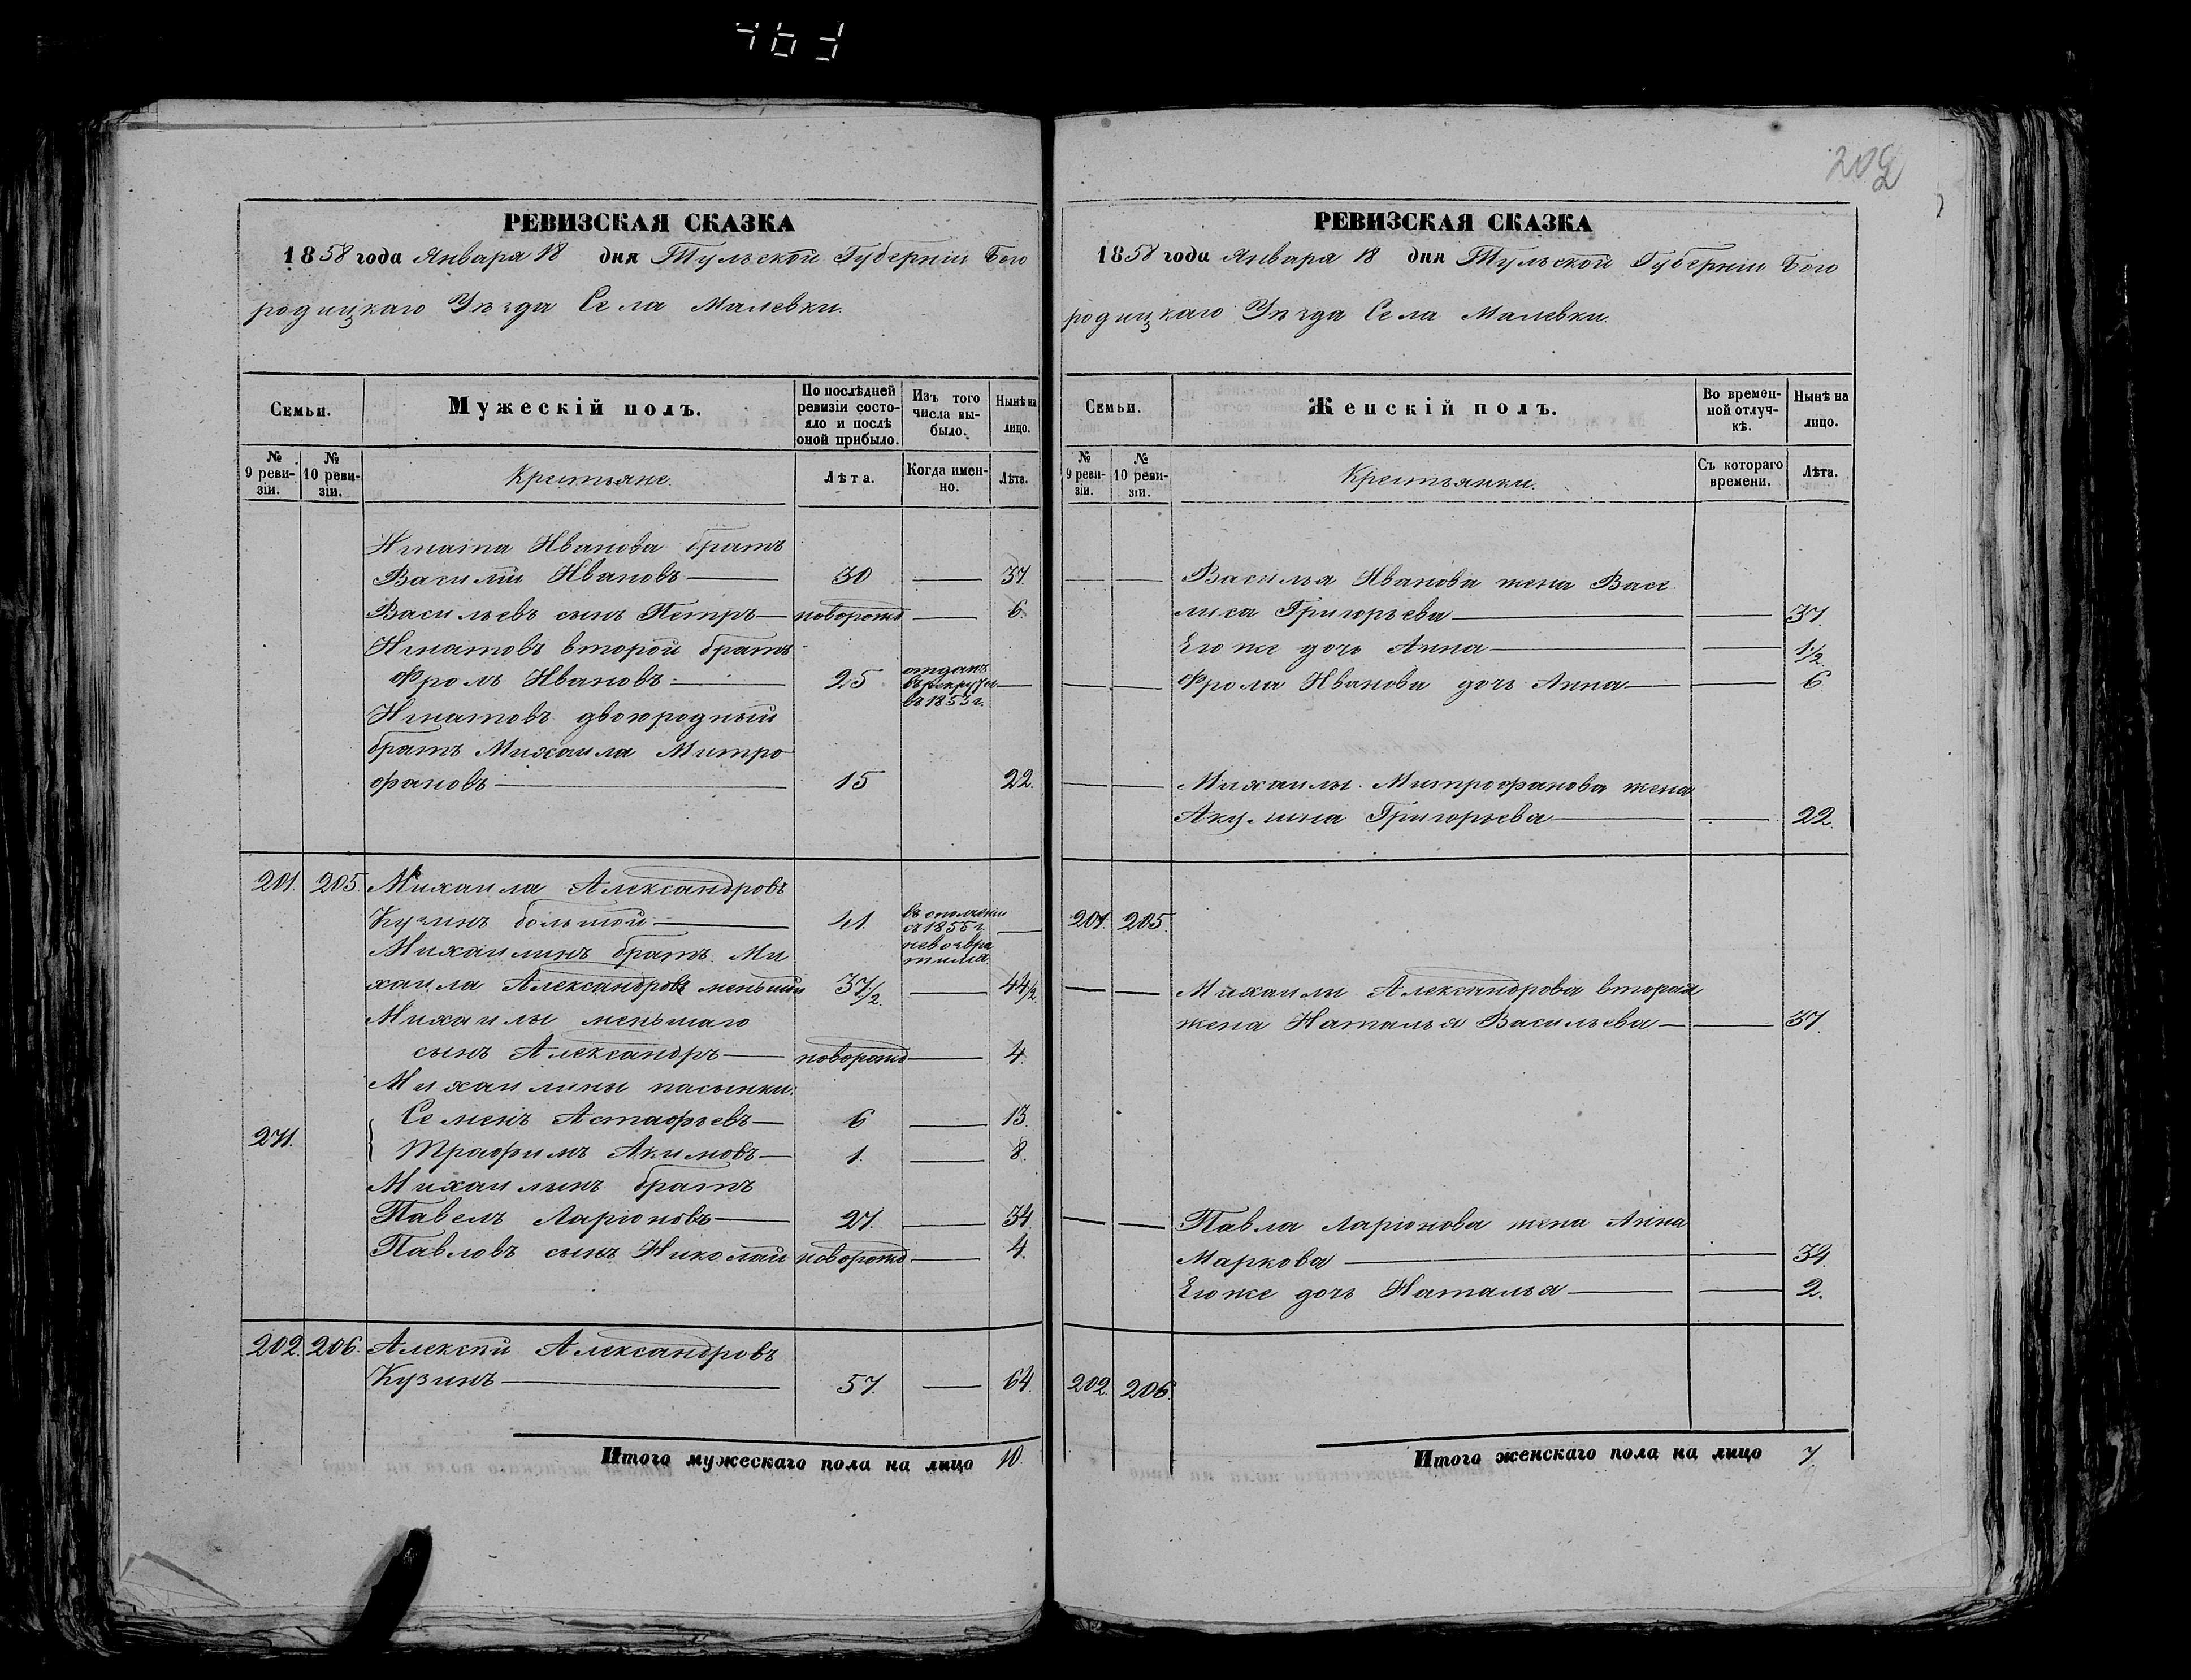 202
РЕВИЗСКАЯ СКАЗКА
1858 года Января 18 дня Тульской Губерніи Бого
родицкаго Уѣзда Села Малевки.
Семьи.
Мужескій полъ.
По послѣдней
ревизіи состо-
яло и послѣ
оной прибыло.
Изъ того
числа вы-
было.
Нынѣ на
лицо.
№
9 реви-
зіи.
№
10 реви-
зіи.
Крестьяне.
Лѣта.
Когда имен-
но.
Лѣта.
Игната Иванова братъ
Василій Ивановъ 30 37.
Васильевъ сынъ Петръ новорожд 6.
Игнатовъ второй братъ
Фролъ Ивановъ 25 отданъ
въ рекруты
въ 1853 г.
Игнатовъ двоюродный
братъ Михаила Митро
фановъ 15 22.
201. 205 Михаила Александровъ
Кузинъ большой 41. въ ополчени
съ 1855 г.
невозвра
тился
Михаилинъ братъ Ми
хаила Александровъ меньшій 37 1/2 44 1/2.
Михаилы меньшаго
сынъ Александръ новорожд 4.
Михаилины пасынки:
271. Семенъ Астафьевъ 6 13.
Трафимъ Акимовъ 1. 8.
Михаилинъ братъ
Павелъ Ларіоновъ 27. 34.
Павловъ сынъ Николай новорожд 4.
202. 206. Алексѣй Александровъ
Кузинъ 57. 64.
Итого мужескаго пола на лицо 10.
РЕВИЗСКАЯ СКАЗКА
1858 года Января 18 дня Тульской Губерніи Бого
родицкаго Уѣзда Села Малевки.
Семьи.
Женскій полъ.
Во времен-
ной отлуч-
кѣ.
Нынѣ на
лицо.
№
9 реви-
зіи.
№
10 реви-
зіи.
Крестьянки.
Съ котораго
времени.
Лѣта.
Василья Иванова жена Васи
лиса Григорьева 37.
Его же дочь Анна 1 1/2.
Фрола Иванова дочь Анна 6
Михаилы Митрофанова жена
Акулина Григорьева 22.
201. 205.
Михаилы Александрова вторая
жена Наталья Васильева 37.
Павла Ларіонова жена Анна
Маркова 34.
Его же дочь Наталья 2.
202. 206.
Итого женскаго пола на лицо 7.